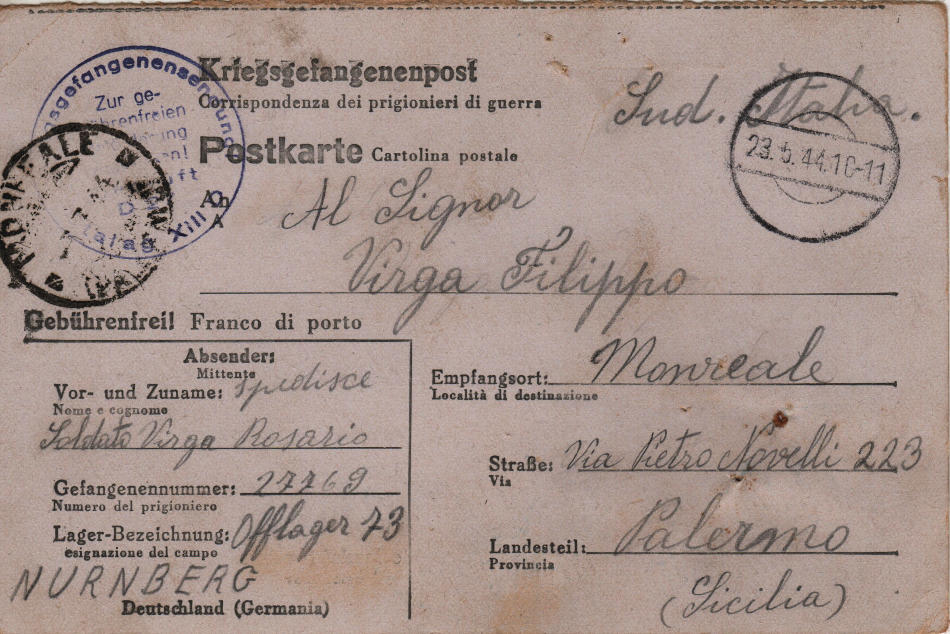 Kriegsgefangenenpost
Corrispondenza dei prigionieri di guerra
Sud. Italia.
Postkarte Cartolina postale
23.5.44.10-11
Zur ge-
Stalag XIII D
MONREALE
An
A
Al Signor
Virga Filippo
Gebührenfrei! Franco di porto
Absender:
Mittente
Vor- und Zuname: spedisce
Nome e cognome
Soldato Virga Rosario
Gefangenennummer: 27769
Numero del prigioniero
Lager-Bezeichnung: Offlager 73
esignazione del campo
NURNBERG
Deutschland (Germania)
Empfangsort: Monreale
Località di destinazione
Straße: Via Pietro Novelli 223
Via
Landesteil: Palermo
Provincia
(Sicilia)